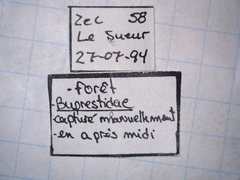 Zec 58
Le Sueur
27-07-94
- Forêt
- Buprestidae
- capturé manuellement
- en après midi